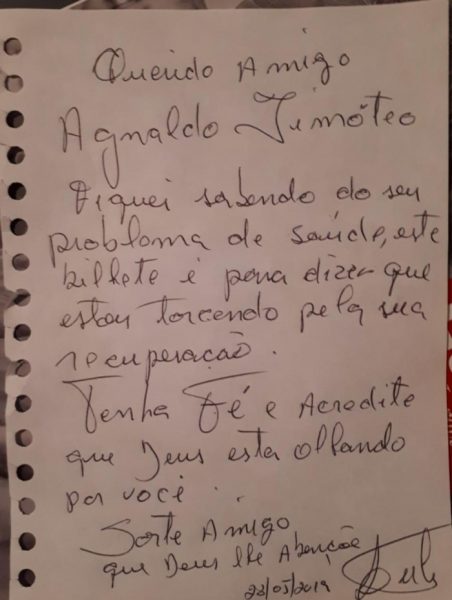 Querido Amigo
Agnaldo Timóteo
Fiquei sabendo do seu
problema de saúde, este
bilhete é para dizer que
estou torcendo pela sua
recuperação.
Tenha Fé e Acredite
que Deus esta olhando
por você.
Sorte Amigo
que Deus lhe Abençõe
23/05/2019
Lula